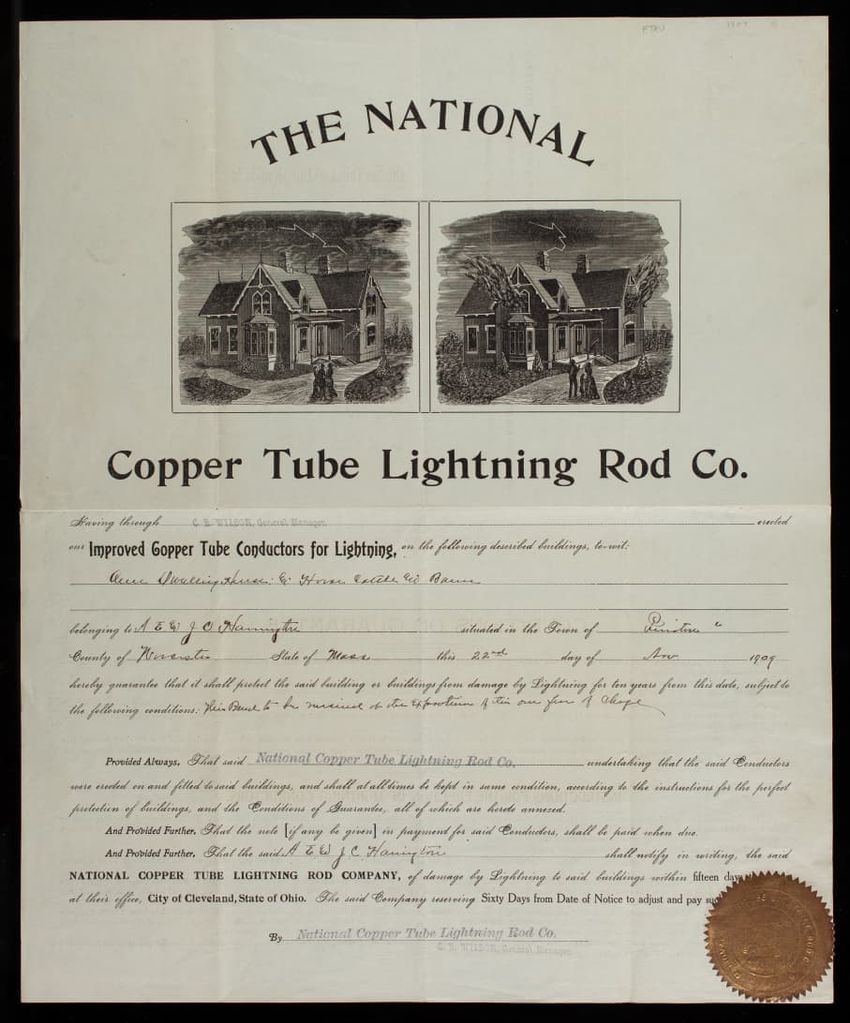 THE NATIONAL
Copper Tube Lightning Rod Co.
Having through C. E. WILSON, General Manager, erected
our Improved Copper Tube Conductors for Lightning, on the following described buildings, to-wit:
Dwelling House & Horse Cattle Barn
belonging to A E & J C Harrington situated in the Town of
County of Worcester State of Mass this 22nd day of Nov 1909
hereby guarantee that it shall protect the said building or buildings from damage by Lightning for ten years from this date, subject to
the following conditions: This Bond to be renewed at the expiration of ten free of Charge
Provided Always, That said National Copper Tube Lightning Rod Co. undertaking that the said Conductors
were erected on and fitted to said buildings, and shall at all times be kept in same condition, according to the instructions for the perfect
protection of buildings, and the Conditions of Guarantee, all of which are hereto annexed.
And Provided Further, That the note [if any be given] in payment for said Conductors, shall be paid when due.
And Provided Further, That the said A E & J C Harrington shall notify in writing, the said
NATIONAL COPPER TUBE LIGHTNING ROD COMPANY, of damage by Lightning to said buildings within fifteen days
at their office, City of Cleveland, State of Ohio. The said Company reserving Sixty Days from Date of Notice to adjust and pay
By National Copper Tube Lightning Rod Co.
C. E. WILSON, General Manager.